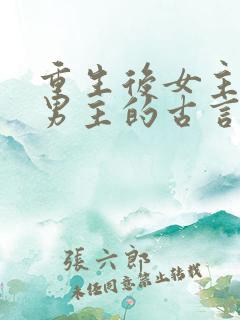 重生後女主
男主的古言
張六郎
未经同意禁止转载